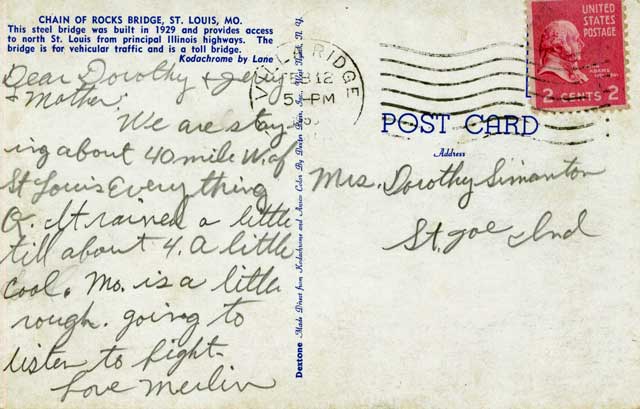 CHAIN OF ROCKS BRIDGE, ST. LOUIS, MO.
This steel bridge was built in 1929 and provides access
to north St. Louis from principal Illinois highways. The
bridge is for vehicular traffic and is a toll bridge.
Kodachrome by Lane
Dear Dorothy & Jerry
& Mother:
We are stay-
ing about 40 mile W. of
St Louis Everything
O.K. It rained a little
till about 4. A little
cool. Mo. is a little
rough. going to
listen to fight.
Love Merlin
Dextone Made Direct from Kodachrome and Ansco Color By Dexter Press, Inc., West Nyack, N. Y.
BRIDGE
FEB 12
5-PM
UNITED
STATES
POSTAGE
2 CENTS 2
POST CARD
Address
Mrs. Dorothy Simanton
St. Joe Ind